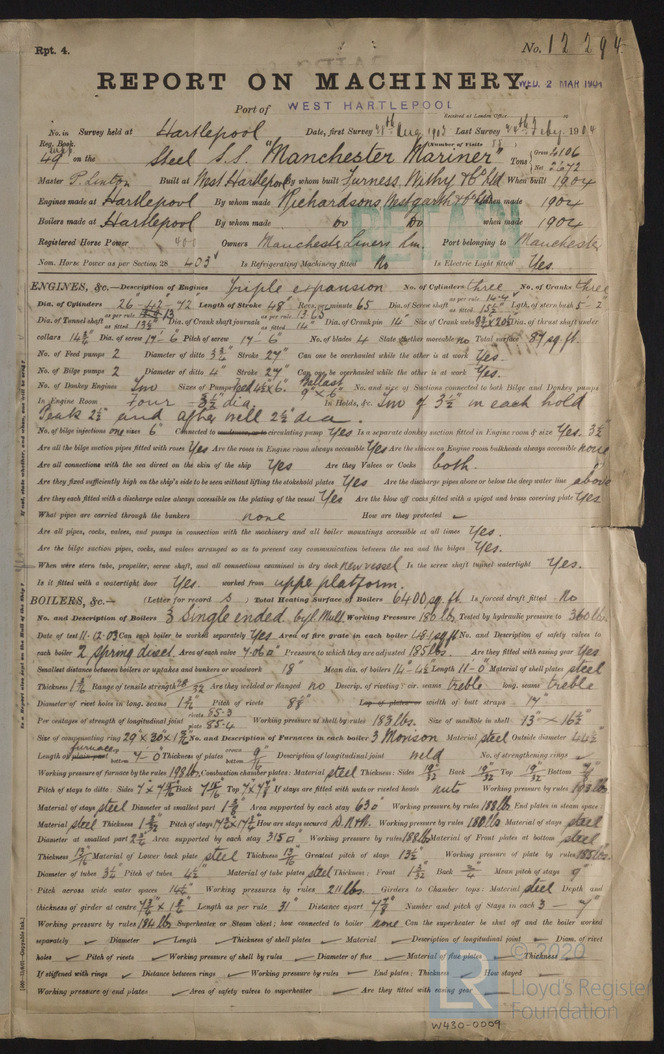 Rpt. 4.
No. 12294
REPORT ON MACHINERY.
WED. 2 MAR 1904
Port of WEST HARTLEPOOL
Received at London Office
No. in Survey held at Hartlepool Date, first Survey 31st Aug 1903 Last Survey Feby. 1904
Reg. Book. (Number of Visits
49 on the Steel S.S. "Manchester Mariner" Tons Gross 4106 Net 2672
Master P. Linton Built at West Hartlepool By whom built Furness, Withy & Co Ltd When built 1904
Engines made at Hartlepool By whom made Richardsons, Westgarth & Co Ltd when made 1904
Boilers made at Hartlepool By whom made Do Do when made 1904
RETAIN
Registered Horse Power 400 Owners Manchester Liners Lim. Port belonging to Manchester
Nom. Horse Power as per Section 28 403 Is Refrigerating Machinery fitted No Is Electric Light fitted Yes.
ENGINES, &c.—Description of Engines Triple expansion No. of Cylinders three No. of Cranks three
Dia. of Cylinders 26-42-72" Length of Stroke 48" Revs. per minute 65 Dia. of Screw shaft as per rule 14.4 as fitted 15½" Lgth. of stern bush 5-2"
Dia. of Tunnel shaft as per rule 13 as fitted 13½" Dia. of Crank shaft journals as per rule 13.65 as fitted 14" Dia. of Crank pin 14" Size of Crank webs Dia. of thrust shaft under
collars 14½" Dia. of screw 17-6" Pitch of screw 17-6" No. of blades 4 State whether moveable no Total surface 87 sq. ft.
No. of Feed pumps 2 Diameter of ditto 3¾" Stroke 27" Can one be overhauled while the other is at work Yes.
No. of Bilge pumps 2 Diameter of ditto 4" Stroke 27" Can one be overhauled while the other is at work Yes.
No. of Donkey Engines Two Sizes of Pumps feed 4½"x6" Ballast 9"x6" No. and size of Suctions connected to both Bilge and Donkey pumps
In Engine Room Four 3½" dia. In Holds, &c. Two of 3½" in each hold
Peak 2½" and after well 2½" dia.
No. of bilge injections one sizes 6" Connected to circulating pump Yes Is a separate donkey suction fitted in Engine room & size Yes. 3½
Are all the bilge suction pipes fitted with roses Yes Are the roses in Engine room always accessible Yes Are the sluices on Engine room bulkheads always accessible none
Are all connections with the sea direct on the skin of the ship Yes Are they Valves or Cocks both.
Are they fixed sufficiently high on the ship's side to be seen without lifting the stokehold plates Yes Are the discharge pipes above or below the deep water line above
Are they each fitted with a discharge valve always accessible on the plating of the vessel Yes Are the blow off cocks fitted with a spigot and brass covering plate Yes
What pipes are carried through the bunkers none How are they protected
Are all pipes, cocks, valves, and pumps in connection with the machinery and all boiler mountings accessible at all times Yes.
Are the bilge suction pipes, cocks, and valves arranged so as to prevent any communication between the sea and the bilges Yes.
When were stern tube, propeller, screw shaft, and all connections examined in dry dock new vessel Is the screw shaft tunnel watertight Yes.
Is it fitted with a watertight door Yes. worked from upper platform.
BOILERS, &c.— (Letter for record S) Total Heating Surface of Boilers 6400 sq. ft. Is forced draft fitted No
No. and Description of Boilers 3 Single ended Cyl. Mult. Working Pressure 180 lbs Tested by hydraulic pressure to 360 lbs
Date of test 11-12-03 Can each boiler be worked separately Yes Area of fire grate in each boiler No. and Description of safety valves to
each boiler 2 Spring direct. Area of each valve 7.06" Pressure to which they are adjusted 185 lbs. Are they fitted with easing gear Yes
Smallest distance between boilers or uptakes and bunkers or woodwork 18" Mean dia. of boilers 14-4½ Length 11-0" Material of shell plates steel
Thickness Range of tensile strength 28/32 Are they welded or flanged no Descrip. of riveting: cir. seams treble long. seams treble
Diameter of rivet holes in long. seams Pitch of rivets width of butt straps 17"
Per centages of strength of longitudinal joint rivets 85.3 plate 85.4 Working pressure of shell by rules 183 lbs. Size of manhole in shell 13"x16½"
Size of compensating ring No. and Description of Furnaces in each boiler 3 Morison Material steel Outside diameter
Length of furnace 7-0 Thickness of plates crown bottom 9/16" Description of longitudinal joint weld No. of strengthening rings
Working pressure of furnace by the rules 198 lbs. Combustion chamber plates: Material steel Thickness: Sides 19/32 Back 19/32" Top 19/32" Bottom
Pitch of stays to ditto: Sides Back Top If stays are fitted with nuts or riveted heads nuts Working pressure by rules
Material of stays steel Diameter at smallest part Area supported by each stay 63□ Working pressure by rules 188 lbs End plates in steam space
Material steel Thickness Pitch of stays How are stays secured D.N&W. Working pressure by rules 180 lbs Material of stays steel
Diameter at smallest part Area supported by each stay 315□ Working pressure by rules 188 lbs Material of Front plates at bottom steel
Thickness 13/16" Material of Lower back plate steel Thickness 13/16" Greatest pitch of stays 13½" Working pressure of plate by rules 185 lbs.
Diameter of tubes 3¼" Pitch of tubes 4½" Material of tube plates steel Thickness: Front Back ¾" Mean pitch of stays 9"
Pitch across wide water spaces 14½" Working pressures by rules 211 lbs. Girders to Chamber tops: Material steel Depth and
thickness of girder at centre Length as per rule 31" Distance apart Number and pitch of Stays in each 3 - 7"
Working pressure by rules 184 lbs Superheater or Steam chest; how connected to boiler none Can the superheater be shut off and the boiler worked
separately Diameter Length Thickness of shell plates Material Description of longitudinal joint Diam. of rivet
holes Pitch of rivets Working pressure of shell by rules Diameter of flue Material of flue plates Thickness
If stiffened with rings Distance between rings Working pressure by rules End plates: Thickness How stayed
Working pressure of end plates Area of safety valves to superheater Are they fitted with easing gear
© 2020
LR
Lloyd's Register
Foundation
W430-0009